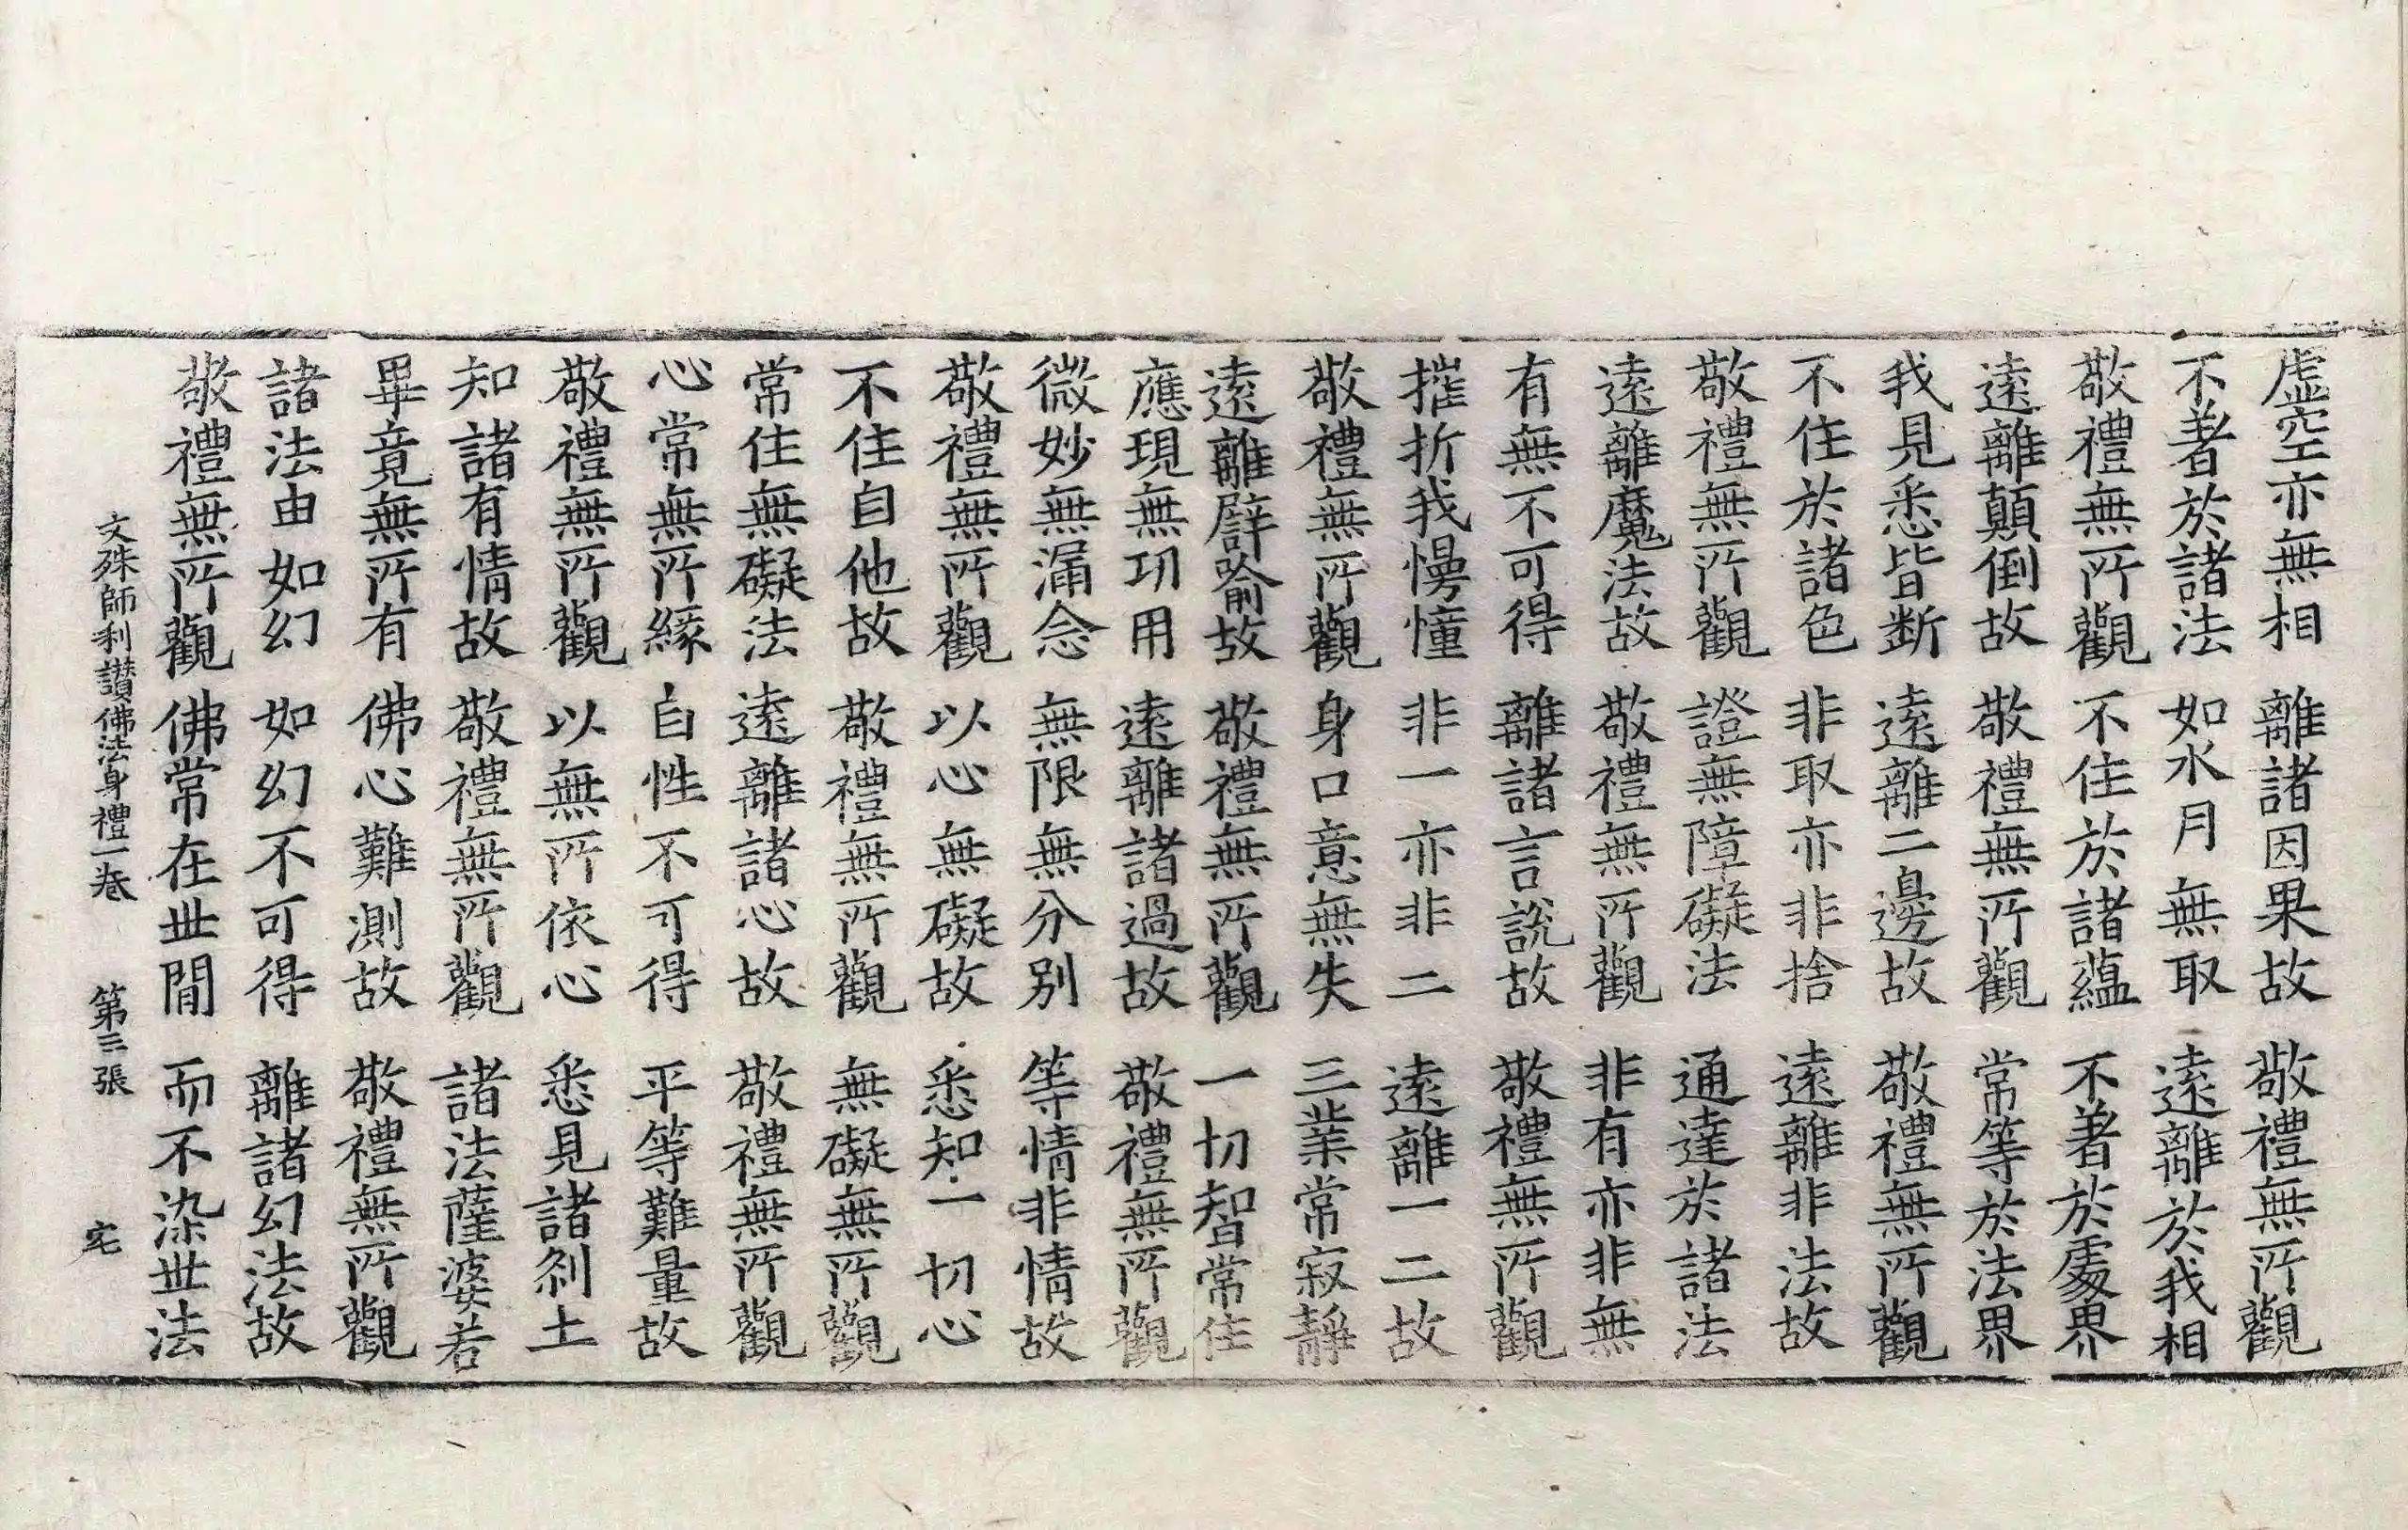 虛空亦無相 離諸因果故 敬禮無所觀
不著於諸法 如水月無取 遠離於我相
敬禮無所觀 不住於諸蘊 不著於處界
遠離顛倒故 敬禮無所觀 常等於法界
我見悉皆斷 遠離二邊故 敬禮無所觀
不住於諸色 非取亦非捨 遠離非法故
敬禮無所觀 證無障礙法 通達於諸法
遠離魔法故 敬禮無所觀 非有亦非無
有無不可得 離諸言說故 敬禮無所觀
摧折我慢憧 非一亦非二 遠離一二故
敬禮無所觀 身口意無失 三業常寂靜
遠離譬喻故 敬禮無所觀 一切智常住
應現無功用 遠離諸過故 敬禮無所觀
微妙無漏念 無限無分別 等情非情故
敬禮無所觀 以心無礙故 悉知一切心
不住自他故 敬禮無所觀 無礙無所觀
常住無礙法 遠離諸心故 敬禮無所觀
心常無所緣 自性不可得 平等難量故
敬禮無所觀 以無所依心 悉見諸剎土
知諸有情故 敬禮無所觀 諸法薩婆若
畢竟無所有 佛心難測故 敬禮無所觀
諸法由如幻 如幻不可得 離諸幻法故
敬禮無所觀 佛常在世間 而不染世法
文殊師利讃佛法身禮一卷 第三張 宅